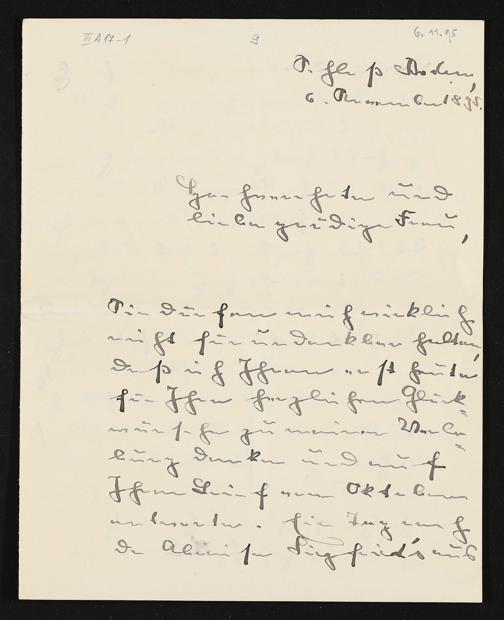 III A 17-1
9
6.11.95
Schloß Aodun,
6. November 1895.
Hochverehrte und
liebe gnädige Frau,
Sie dürfen mich wirklich
nicht für undankbar halten,
daß ich Ihnen erst heute
für Ihre herzlichen Glück-
wünsche zu meiner Verlo-
bung danke und auf
Ihren Brief vom Oktober
antworte. Die Tage nach
der Abreise Siegfried's aus